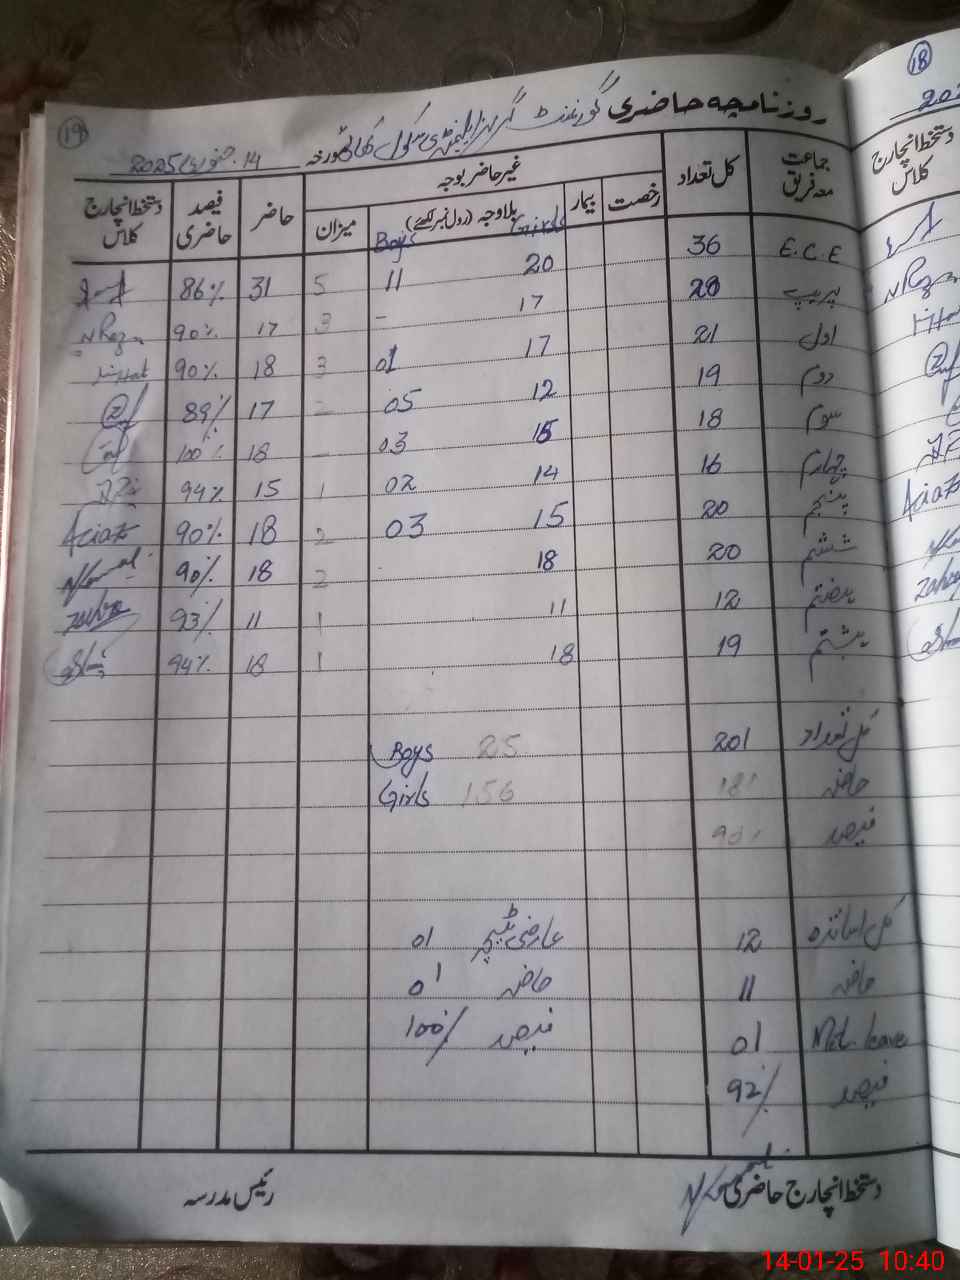 19
روزنامچہ حاضری گورنمنٹ گرلز ایلیمنٹری سکول کھائی مورخہ 14 جنوری 2025
جماعت معہ فریق کل تعداد غیر حاضر بوجہ حاضر فیصد حاضری دستخط انچارج کلاس
رخصت بیمار بلاوجہ (رول نمبر لکھئے) میزان
Boys Girls
E.C.E 36 20 11 5 31 86%
پریپ 20 17 - 3 17 90%
اول 21 17 01 3 18 90%
دوم 19 12 05 2 17 89%
سوم 18 15 03 - 18 100%
چہارم 16 14 02 1 15 94%
پنجم 20 15 03 2 18 90% Aciat
ششم 20 18 2 18 90%
ہفتم 12 11 1 11 93%
ہشتم 19 18 1 18 94%
کل تعداد 201 Boys 25
حاضر 181 Girls 156
فیصد 90%
کل اساتذہ 12 عارضی ٹیچر 01
حاضر 11 حاضر 01
Mat. leave 01 فیصد 100%
فیصد 92%
دستخط انچارج حاضری رئیس مدرسہ
18
دستخط انچارج کلاس
14-01-25 10:40